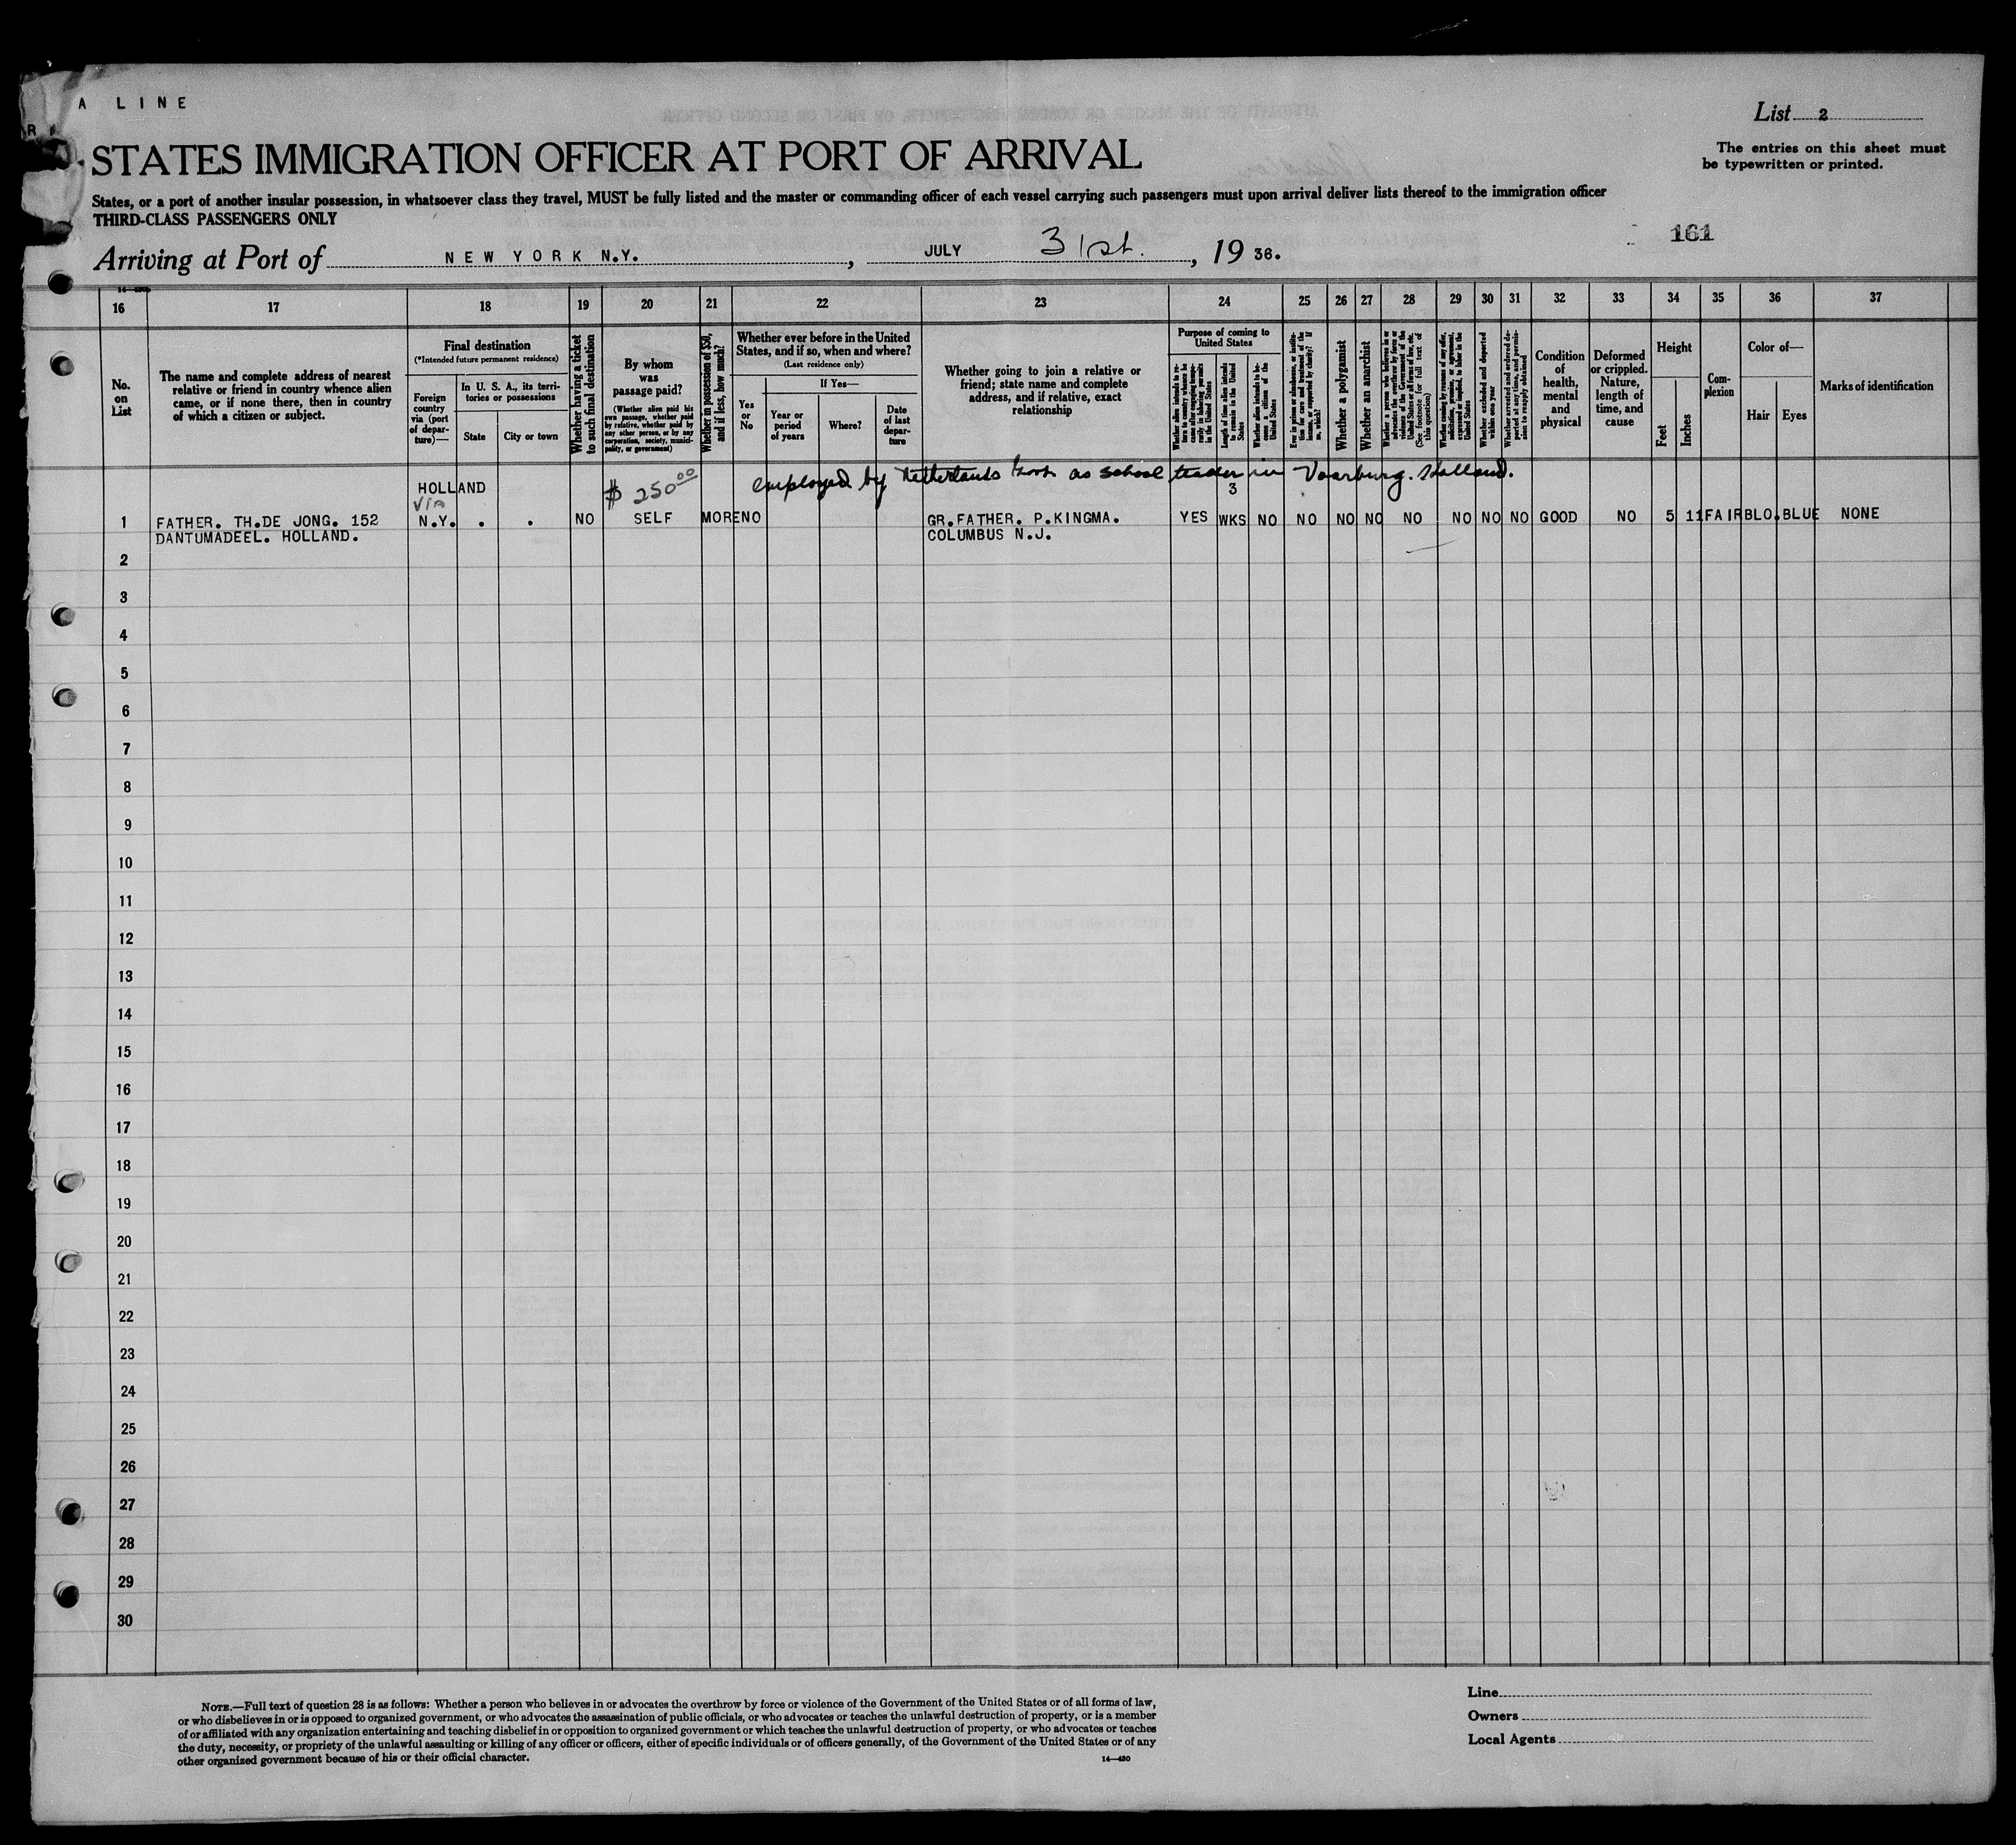 A LINE
R
List 2
STATES IMMIGRATION OFFICER AT PORT OF ARRIVAL
The entries on this sheet must
be typewritten or printed.
States, or a port of another insular possession, in whatsoever class they travel, MUST be fully listed and the master or commanding officer of each vessel carrying such passengers must upon arrival deliver lists thereof to the immigration officer
THIRD-CLASS PASSENGERS ONLY
161
Arriving at Port of NEW YORK N.Y., JULY 31st., 1936.
16 17 18 19 20 21 22 23 24 25 26 27 28 29 30 31 32 33 34 35 36 37
No.
on
List
The name and complete address of nearest
relative or friend in country whence alien
came, or if none there, then in country
of which a citizen or subject.
Final destination
(*Intended future permanent residence)
Foreign
country
via (port
of depar-
ture)—
In U. S. A., its terri-
tories or possessions
State
City or town
Whether having a ticket
to such final destination
By whom
was
passage paid?
(Whether alien paid his
own passage, whether paid
by relative, whether paid by
any other person, or by any
corporation, society, munici-
pality, or government)
Whether in possession of $50,
and if less, how much?
Whether ever before in the United
States, and if so, when and where?
(Last residence only)
Yes
or
No
If Yes—
Year or
period
of years
Where?
Date
of last
depar-
ture
Whether going to join a relative or
friend; state name and complete
address, and if relative, exact
relationship
Purpose of coming to
United States
Length of time alien intends
to remain in the United
States
Whether alien intends to be-
come a citizen of the
United States
Whether a polygamist
Whether an anarchist
(See footnote for full text of
this question)
Whether excluded and deported
within one year
Condition
of
health,
mental
and
physical
Deformed
or crippled.
Nature,
length of
time, and
cause
Height
Feet
Inches
Com-
plexion
Color of—
Hair
Eyes
Marks of identification
employed by Netherlands Govt. as school teacher in Voorburg. Holland.
HOLLAND $ 250.00 3
via
1 FATHER. TH.DE JONG. 152 N.Y. . . NO SELF MORE NO GR.FATHER. P.KINGMA. YES WKS NO NO NO NO NO NO NO NO GOOD NO 5 11 FAIR BLO. BLUE NONE
DANTUMADEEL. HOLLAND. COLUMBUS N.J.
2
3
4
5
6
7
8
9
10
11
12
13
14
15
16
17
18
19
20
21
22
23
24
25
26
27
28
29
30
NOTE.—Full text of question 28 is as follows: Whether a person who believes in or advocates the overthrow by force or violence of the Government of the United States or of all forms of law,
or who disbelieves in or is opposed to organized government, or who advocates the assassination of public officials, or who advocates or teaches the unlawful destruction of property, or is a member
of or affiliated with any organization entertaining and teaching disbelief in or opposition to organized government or which teaches the unlawful destruction of property, or who advocates or teaches
the duty, necessity, or propriety of the unlawful assaulting or killing of any officer or officers, either of specific individuals or of officers generally, of the Government of the United States or of any
other organized government because of his or their official character.
14—480
Line
Owners
Local Agents